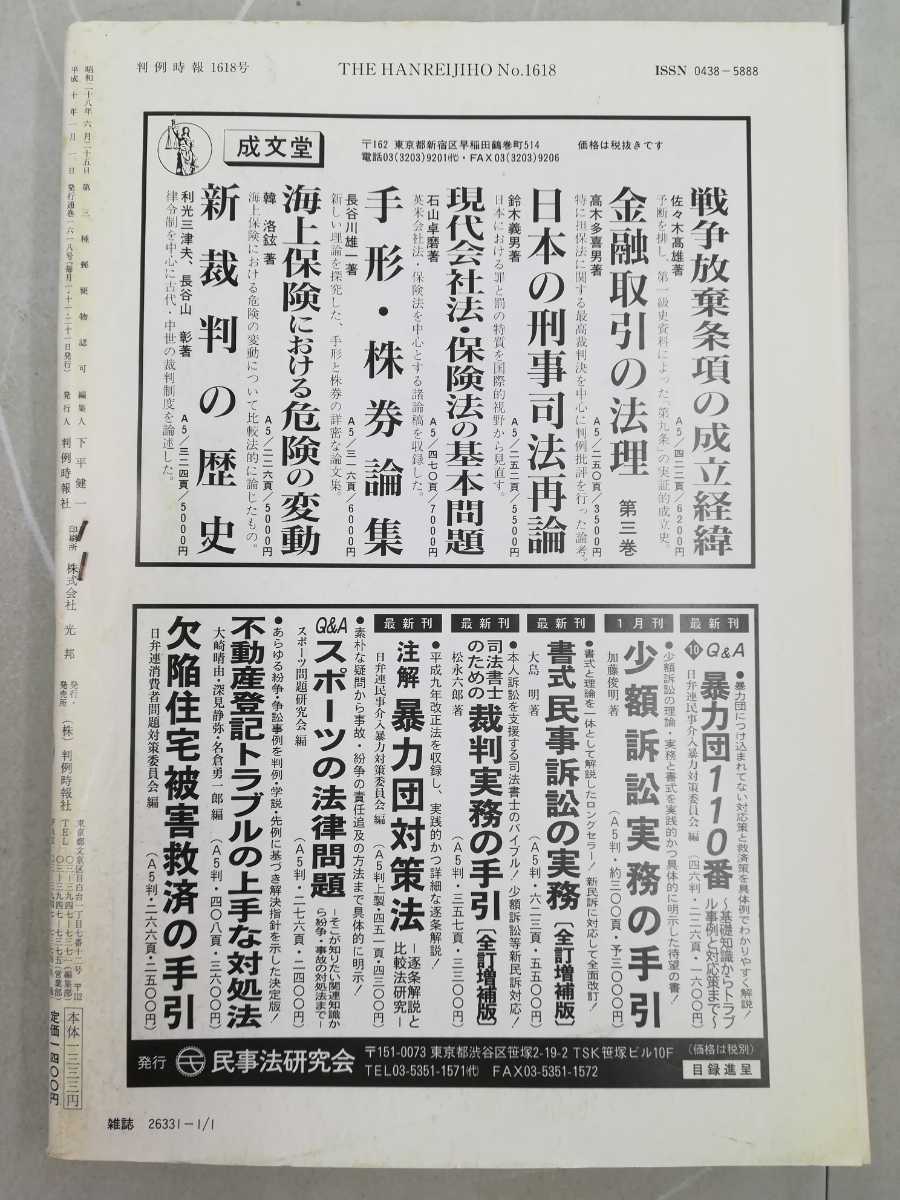 判例時報 1618号
THE HANREIJIHO No.1618
ISSN 0438-5888
成文堂
〒162 東京都新宿区早稲田鶴巻町514
電話03(3203)9201㈹・FAX03(3203)9206
価格は税抜きです
戦争放棄条項の成立経緯
佐々木髙雄著
A5/422頁/6200円
予断を排し、第一級史資料によった「第九条」の実証的成立史。
金融取引の法理 第三巻
高木多喜男著
A5/250頁/3500円
特に担保法に関する最高裁判決を中心に判例批評を行った論考。
日本の刑事司法再論
鈴木義男著
A5/352頁/5500円
日本における罪と罰の特質を国際的視野から見直す。
現代会社法・保険法の基本問題
石山卓磨著
A5/470頁/7000円
英米会社法・保険法を中心とする諸論稿を収録した。
手形・株券論集
長谷川雄一著
A5/316頁/6000円
新しい理論を探究した、手形と株券の詳密な論文集。
海上保険における危険の変動
韓 洛鉉 著
A5/226頁/5000円
海上保険における危険の変動について比較法的に論じたもの。
新裁判の歴史
利光三津夫、長谷山 彰著
A5/324頁/5000円
律令制を中心に古代・中世の裁判制度を論述した。
最新刊
⑩Q&A 暴力団110番 〜基礎知識からトラブル事例と対応策まで〜
●暴力団につけ込まれてない対応策と救済策を具体例でわかりやすく解説!
日弁連民事介入暴力対策委員会 編
(四六判・二二六頁・一六〇〇円)
1月刊
少額訴訟実務の手引
●少額訴訟の理論・実務と書式を実践的かつ具体的に明示した待望の書!
加藤俊明著
(A5判・約三〇〇頁・予三〇〇〇円)
最新刊
書式民事訴訟の実務〔全訂増補版〕
●書式と理論を一体として解説したロングセラー! 新民訴に対応して全面改訂!
大島 明 著
(A5判・六二三頁・五五〇〇円)
最新刊
司法書士のための 裁判実務の手引〔全訂増補版〕
●本人訴訟を支援する司法書士のバイブル! 少額訴訟等新民訴対応!
松永六郎 著
(A5判・三五七頁・三三〇〇円)
最新刊
注解 暴力団対策法 ―逐条解説と比較法研究―
●平成九年改正法を収録し、実践的かつ詳細な逐条解説!
日弁連民事介入暴力対策委員会 編
(A5判上製・四五一頁・四三〇〇円)
Q&A スポーツの法律問題 ―そこが知りたい関連知識から紛争・事故の対処法まで―
●素朴な疑問から事故・紛争の責任追及の方法まで具体的に明示!
スポーツ問題研究会編
(A5判・二七六頁・二四〇〇円)
不動産登記トラブルの上手な対処法
●あらゆる紛争・争訟事例を判例・学説・先例に基づき解決指針を示した決定版!
大崎晴由・深見静弥・名倉勇一郎 編
(A5判・四〇八頁・三六〇〇円)
欠陥住宅被害救済の手引
日弁連消費者問題対策委員会 編
(A5判・二六六頁・二五〇〇円)
発行 民事法研究会
〒151-0073 東京都渋谷区笹塚2-19-2 TSK笹塚ビル10F
TEL03-5351-1571㈹ FAX03-5351-1572
(価格は税別)
目録進呈
昭和二十八年六月二十五日 第三種郵便物認可
平成十年一月一日発行通巻一六一八号(毎月一・十一・二十一日発行)
編集人 下平健一
発行人 判例時報社
印刷所 株式会社 光邦
発行・発売所 (株)判例時報社
東京都文京区目白台一丁目七十二号 〒112
本体一三三三円
定価一四〇〇円
雑誌 26331-1/1